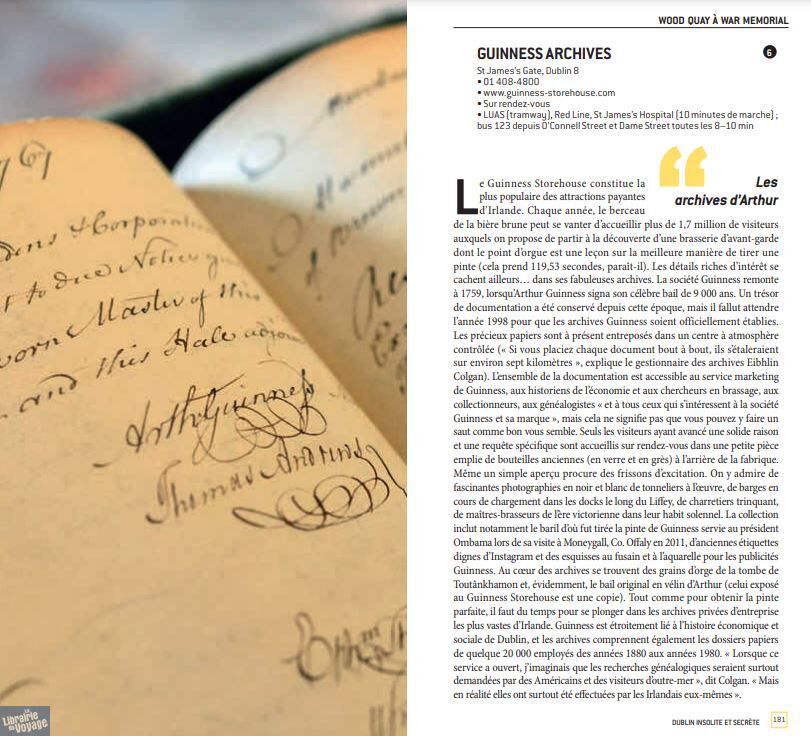 767
dens & Corporation
t to due Notice
worn Master of this
and this Hale
Arth Guinness
Thomas Andrews
La Librairie du Voyage
WOOD QUAY À WAR MEMORIAL
GUINNESS ARCHIVES
6
St James's Gate, Dublin 8
• 01 408-4800
• www.guinness-storehouse.com
• Sur rendez-vous
• LUAS (tramway), Red Line, St James's Hospital (10 minutes de marche) ;
bus 123 depuis O'Connell Street et Dame Street toutes les 8–10 min
“ Les
archives d'Arthur
Le Guinness Storehouse constitue la
plus populaire des attractions payantes
d'Irlande. Chaque année, le berceau
de la bière brune peut se vanter d'accueillir plus de 1,7 million de visiteurs
auxquels on propose de partir à la découverte d'une brasserie d'avant-garde
dont le point d'orgue est une leçon sur la meilleure manière de tirer une
pinte (cela prend 119,53 secondes, paraît-il). Les détails riches d'intérêt se
cachent ailleurs… dans ses fabuleuses archives. La société Guinness remonte
à 1759, lorsqu'Arthur Guinness signa son célèbre bail de 9 000 ans. Un trésor
de documentation a été conservé depuis cette époque, mais il fallut attendre
l'année 1998 pour que les archives Guinness soient officiellement établies.
Les précieux papiers sont à présent entreposés dans un centre à atmosphère
contrôlée (« Si vous placiez chaque document bout à bout, ils s'étaleraient
sur environ sept kilomètres », explique le gestionnaire des archives Eibhlin
Colgan). L'ensemble de la documentation est accessible au service marketing
de Guinness, aux historiens de l'économie et aux chercheurs en brassage, aux
collectionneurs, aux généalogistes « et à tous ceux qui s'intéressent à la société
Guinness et sa marque », mais cela ne signifie pas que vous pouvez y faire un
saut comme bon vous semble. Seuls les visiteurs ayant avancé une solide raison
et une requête spécifique sont accueillis sur rendez-vous dans une petite pièce
emplie de bouteilles anciennes (en verre et en grès) à l'arrière de la fabrique.
Même un simple aperçu procure des frissons d'excitation. On y admire de
fascinantes photographies en noir et blanc de tonneliers à l'œuvre, de barges en
cours de chargement dans les docks le long du Liffey, de charretiers trinquant,
de maîtres-brasseurs de l'ère victorienne dans leur habit solennel. La collection
inclut notamment le baril d'où fut tirée la pinte de Guinness servie au président
Ombama lors de sa visite à Moneygall, Co. Offaly en 2011, d'anciennes étiquettes
dignes d'Instagram et des esquisses au fusain et à l'aquarelle pour les publicités
Guinness. Au cœur des archives se trouvent des grains d'orge de la tombe de
Toutânkhamon et, évidemment, le bail original en vélin d'Arthur (celui exposé
au Guinness Storehouse est une copie). Tout comme pour obtenir la pinte
parfaite, il faut du temps pour se plonger dans les archives privées d'entreprise
les plus vastes d'Irlande. Guinness est étroitement lié à l'histoire économique et
sociale de Dublin, et les archives comprennent également les dossiers papiers
de quelque 20 000 employés des années 1880 aux années 1980. « Lorsque ce
service a ouvert, j'imaginais que les recherches généalogiques seraient surtout
demandées par des Américains et des visiteurs d'outre-mer », dit Colgan. « Mais
en réalité elles ont surtout été effectuées par les Irlandais eux-mêmes ».
DUBLIN INSOLITE ET SECRÈTE 181